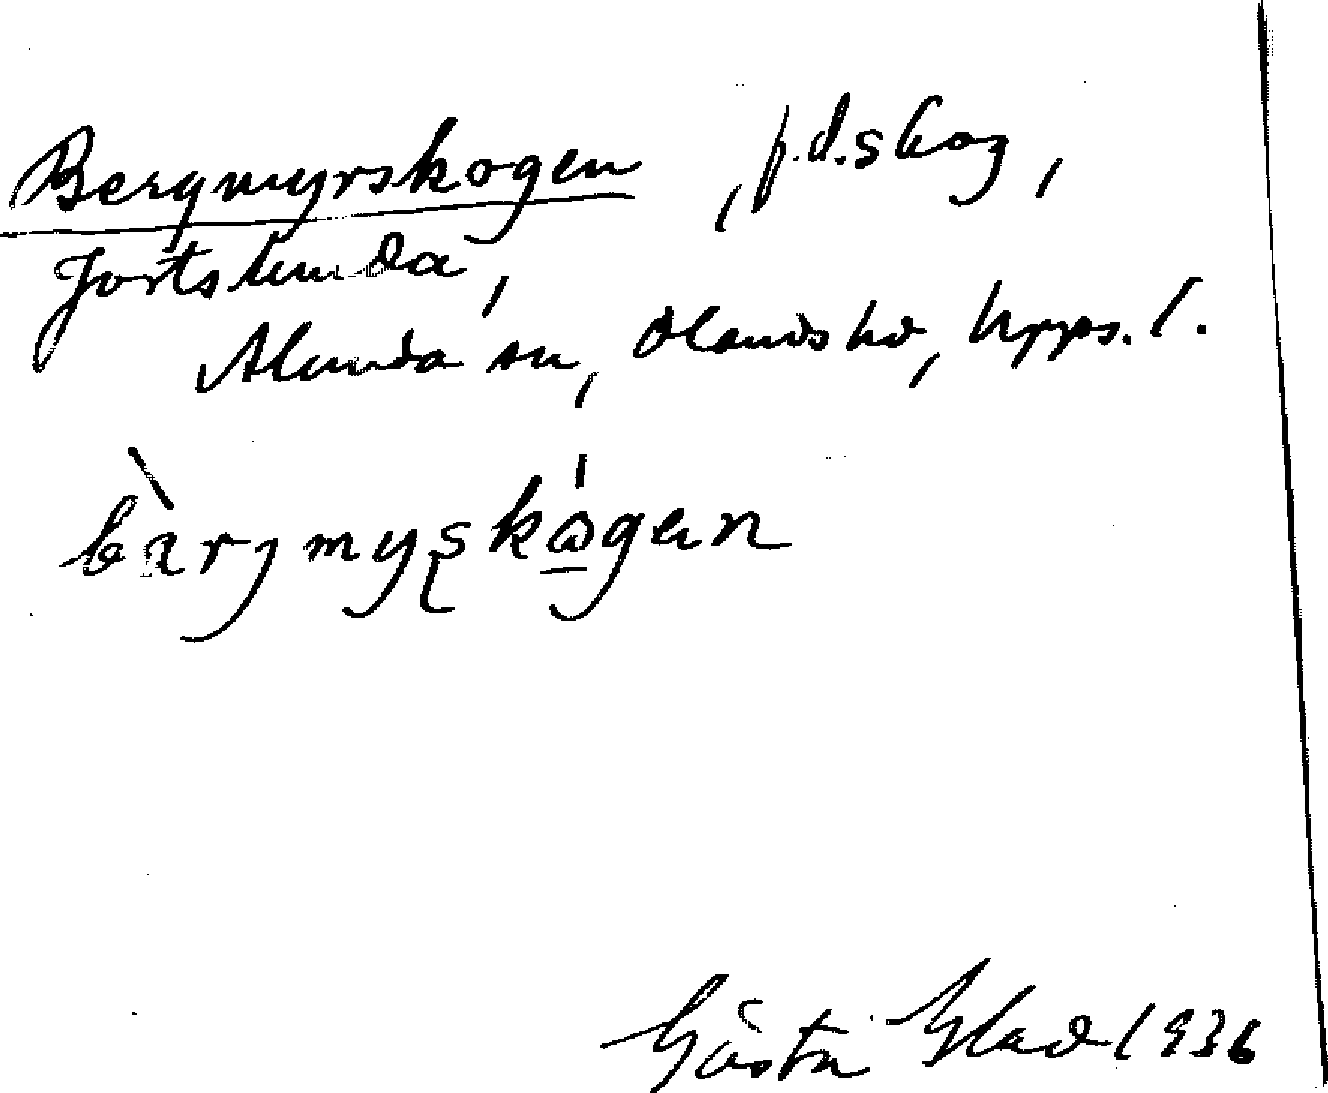 Bergmyrskogen, f.d. skog,
Jortslunda,
Alunda sn, Olands hd, Upps. l.
bàrjmyskógan
Gösta Glad 1936